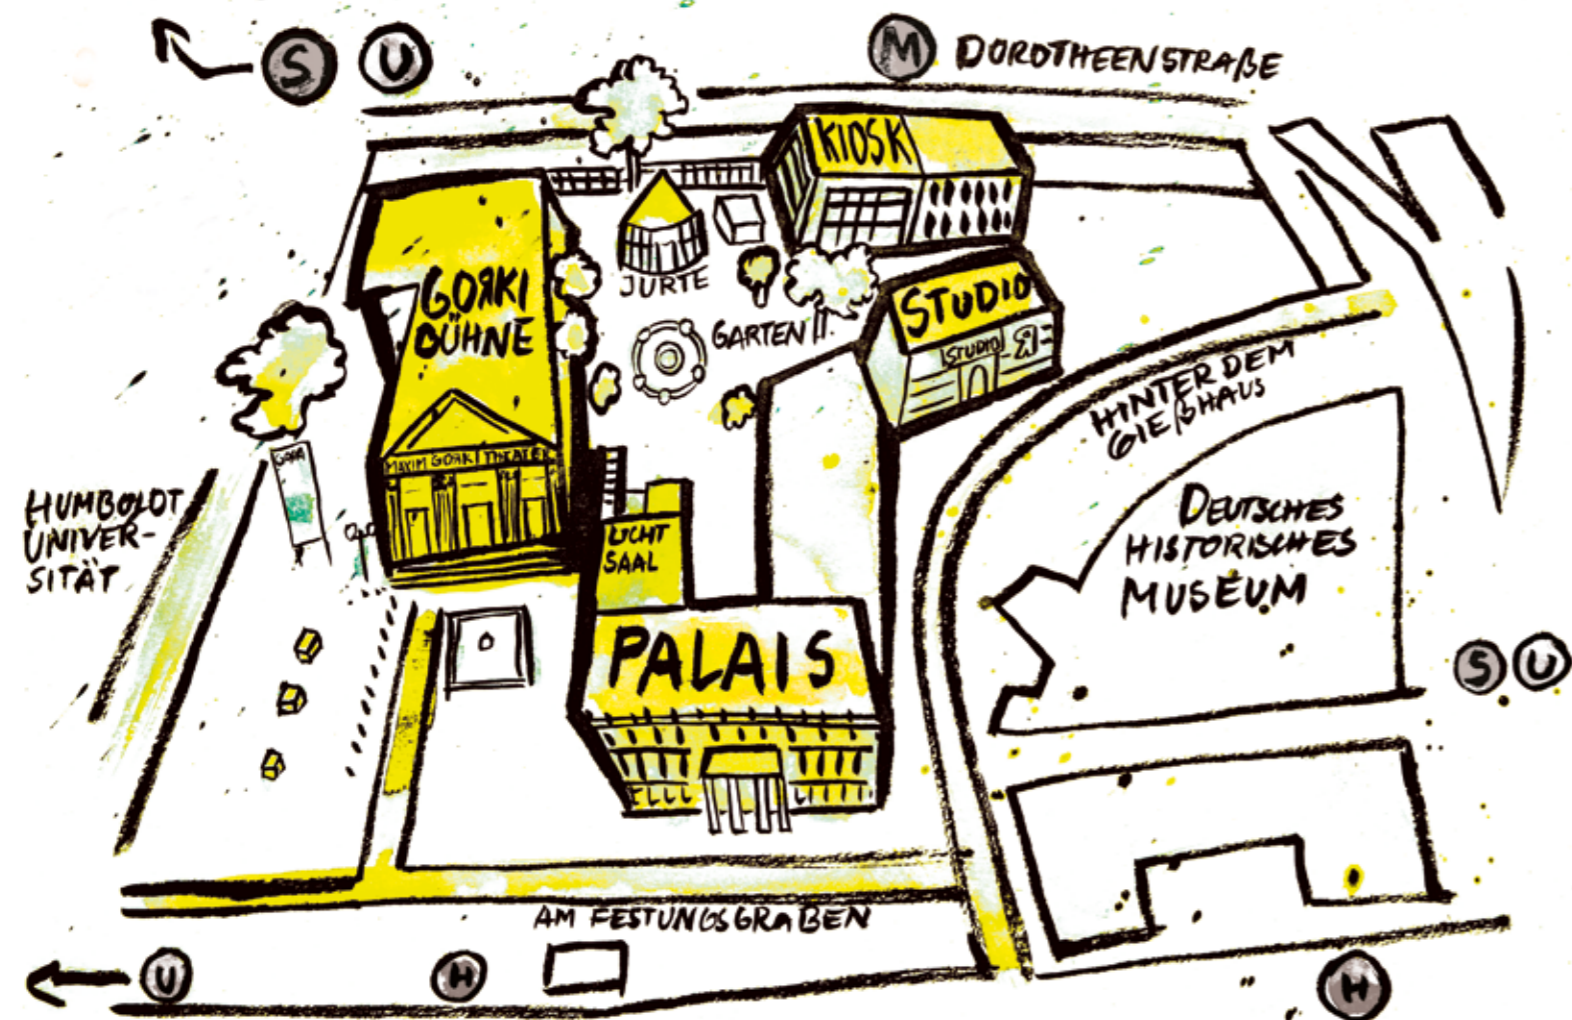 S U
M DOROTHEENSTRAßE
KIOSK
GOЯKI
BÜHNE
JURTE
STUDIO
GARTEN
STUDIO Я
HINTER DEM
GIEßHAUS
MAXIM GORKI THEATER
HUMBOLDT
UNIVER-
SITÄT
LICHT
SAAL
DEUTSCHES
HISTORISCHES
MUSEUM
PALAIS
S U
AM FESTUNGSGRABEN
U
H
H